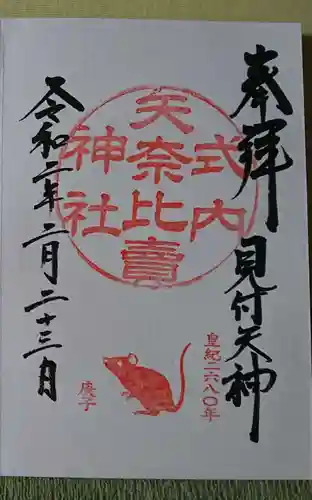 奉拝 見付天神
式内
矢奈比賣
神社
皇紀二六八〇年
庚子
令和二年二月二十三日